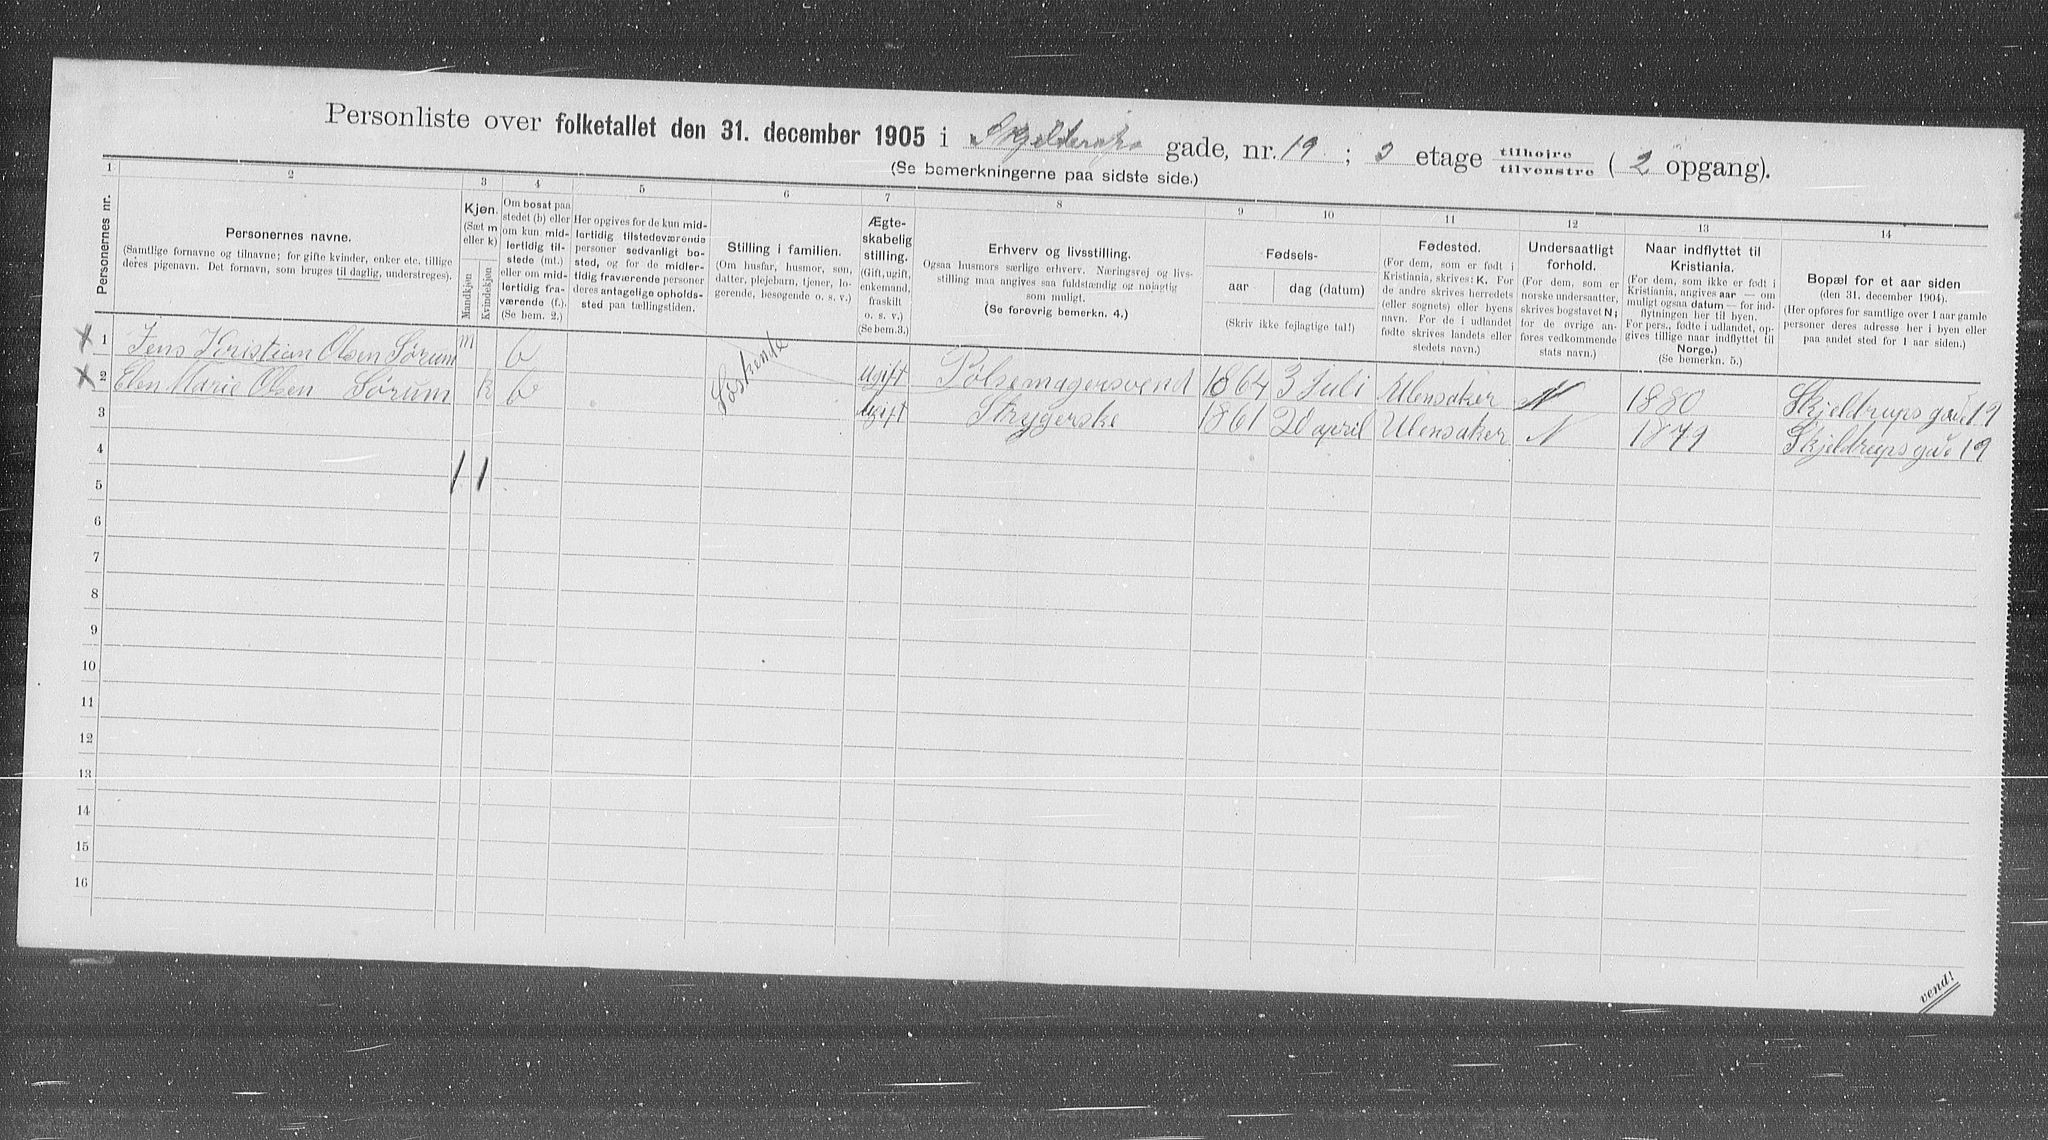 Personliste over folketallet den 31. december 1905 i Skjelderups gade, nr. 19 ; 3 etage tilhøire tilvenstre ( 2 opgang).
(Se bemerkningerne paa sidste side.)
1 2 3 4 5 6 7 8 9 10 11 12 13 14
Personernes nr.
Personernes navne.
(Samtlige fornavne og tilnavne; for gifte kvinder, enker etc. tillige
deres pigenavn. Det fornavn, som bruges til daglig, understreges).
Kjøn.
(Sæt m
eller k)
Mandkjøn
Kvindekjøn
Om bosat paa
stedet (b) eller
om kun mid-
lertidig til-
stede (mt.)
eller om mid-
lertidig fra-
værende (f.).
(Se bem. 2.)
Her opgives for de kun mid-
lertidig tilstedeværende
personer sedvanligt bo-
sted, og for de midler-
tidig fraværende personer
deres antagelige opholds-
sted paa tællingstiden.
Stilling i familien.
(Om husfar, husmor, søn,
datter, plejebarn, tjener, lo-
gerende, besøgende o. s. v.)
Ægte-
skabelig
stilling.
(Gift, ugift,
enkemand,
fraskilt
o. s. v.)
(Se bem. 3.)
Erhverv og livsstilling.
Ogsaa husmors særlige erhverv. Næringsvej og livs-
stilling maa angives saa fuldstændig og nøjagtig
som muligt.
(Se forøvrig bemerkn. 4.)
Fødsels-
aar dag (datum)
(Skriv ikke fejlagtige tal!)
Fødested.
(For dem, som er født i
Kristiania, skrives: K. For
de andre skrives herredets
(eller sognets) eller byens
navn. For de i udlandet
fødte skrives landets eller
stedets navn.)
Undersaatligt
forhold.
(For dem, som er
norske undersaatter,
skrives bogstavet N;
for de øvrige an-
føres vedkommende
stats navn.)
Naar indflyttet til
Kristiania.
(For dem, som ikke er født i
Kristiania, angives aar — om
muligt ogsaa datum — for ind-
flytningen her til byen.
For pers., fødte i udlandet, op-
gives tillige naar indflyttet til
Norge.)
(Se bemerkn. 5.)
Bopæl for et aar siden
(den 31. december 1904).
(Her opføres for samtlige over 1 aar gamle
personer deres adresse her i byen eller
paa andet sted for 1 aar siden.)
X 1 Jens Kristian Olsen Sørum m b Søskende ugift Pølsemagersvend 1864 3 Juli Ulensaker N 1880 Skjeldrups gade 19
X 2 Elen Marie Olsen Sørum k b ugift Strygerske 1861 20 april Ulensaker N 1879 Skjeldrups gade 19
3
4 1 1
5
6
7
8
9
10
11
12
13
14
15
16
vend!